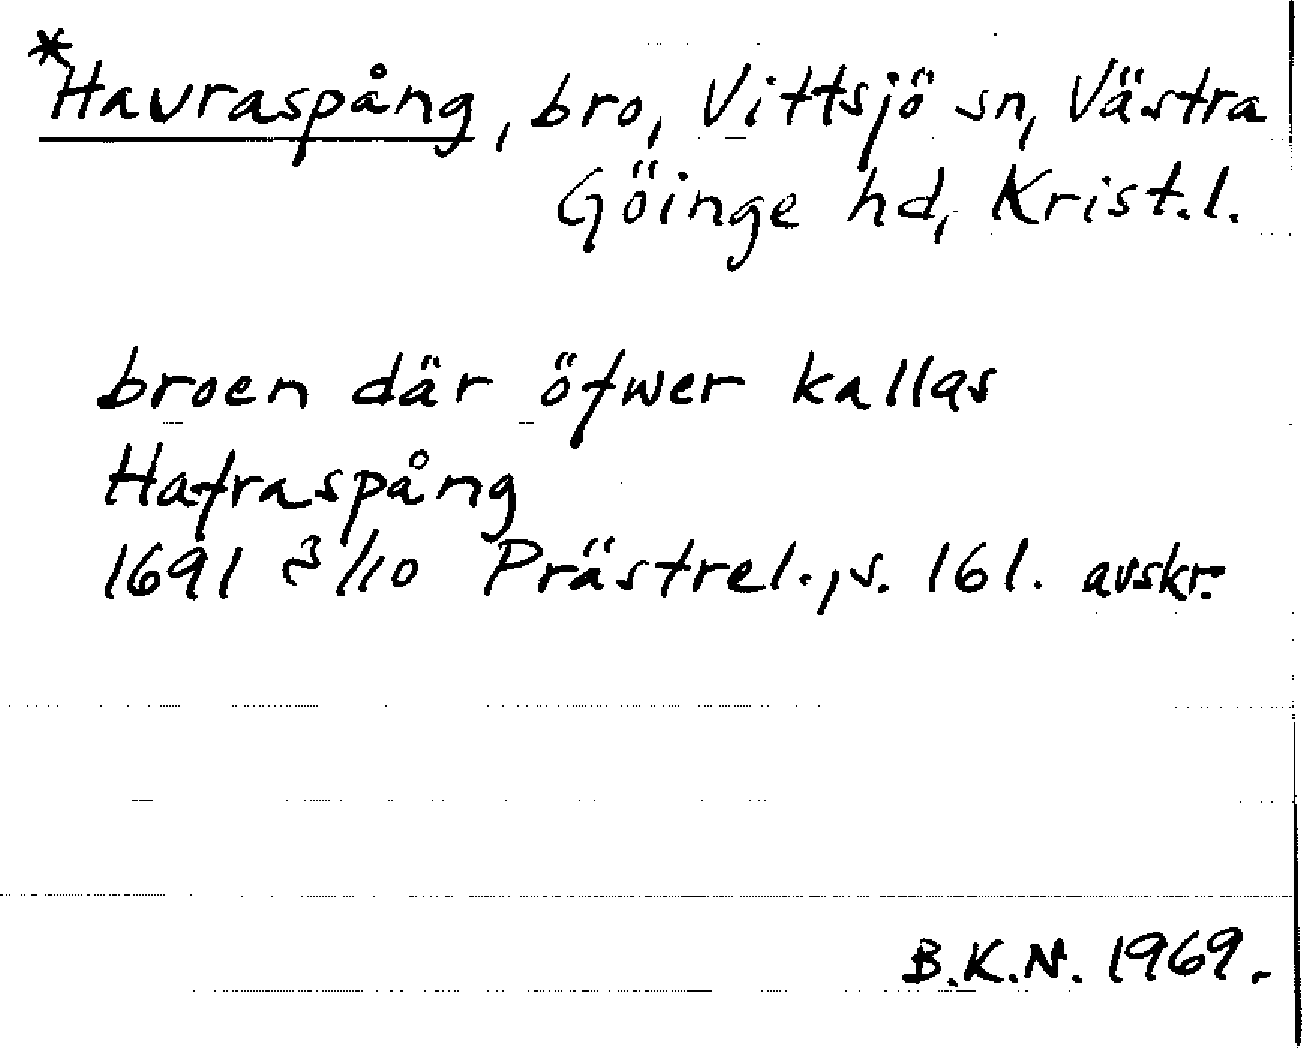 *Havraspång, bro, Vittsjö sn, Västra
Göinge hd, Krist.l.
broen där öfwer kallas
Hafraspång
1691 3/10 Prästrel., s. 161. avskr.
B.K.N. 1969.